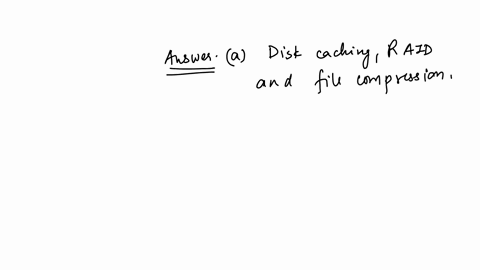 Answer. (a) Disk caching, RAID
and file compression.